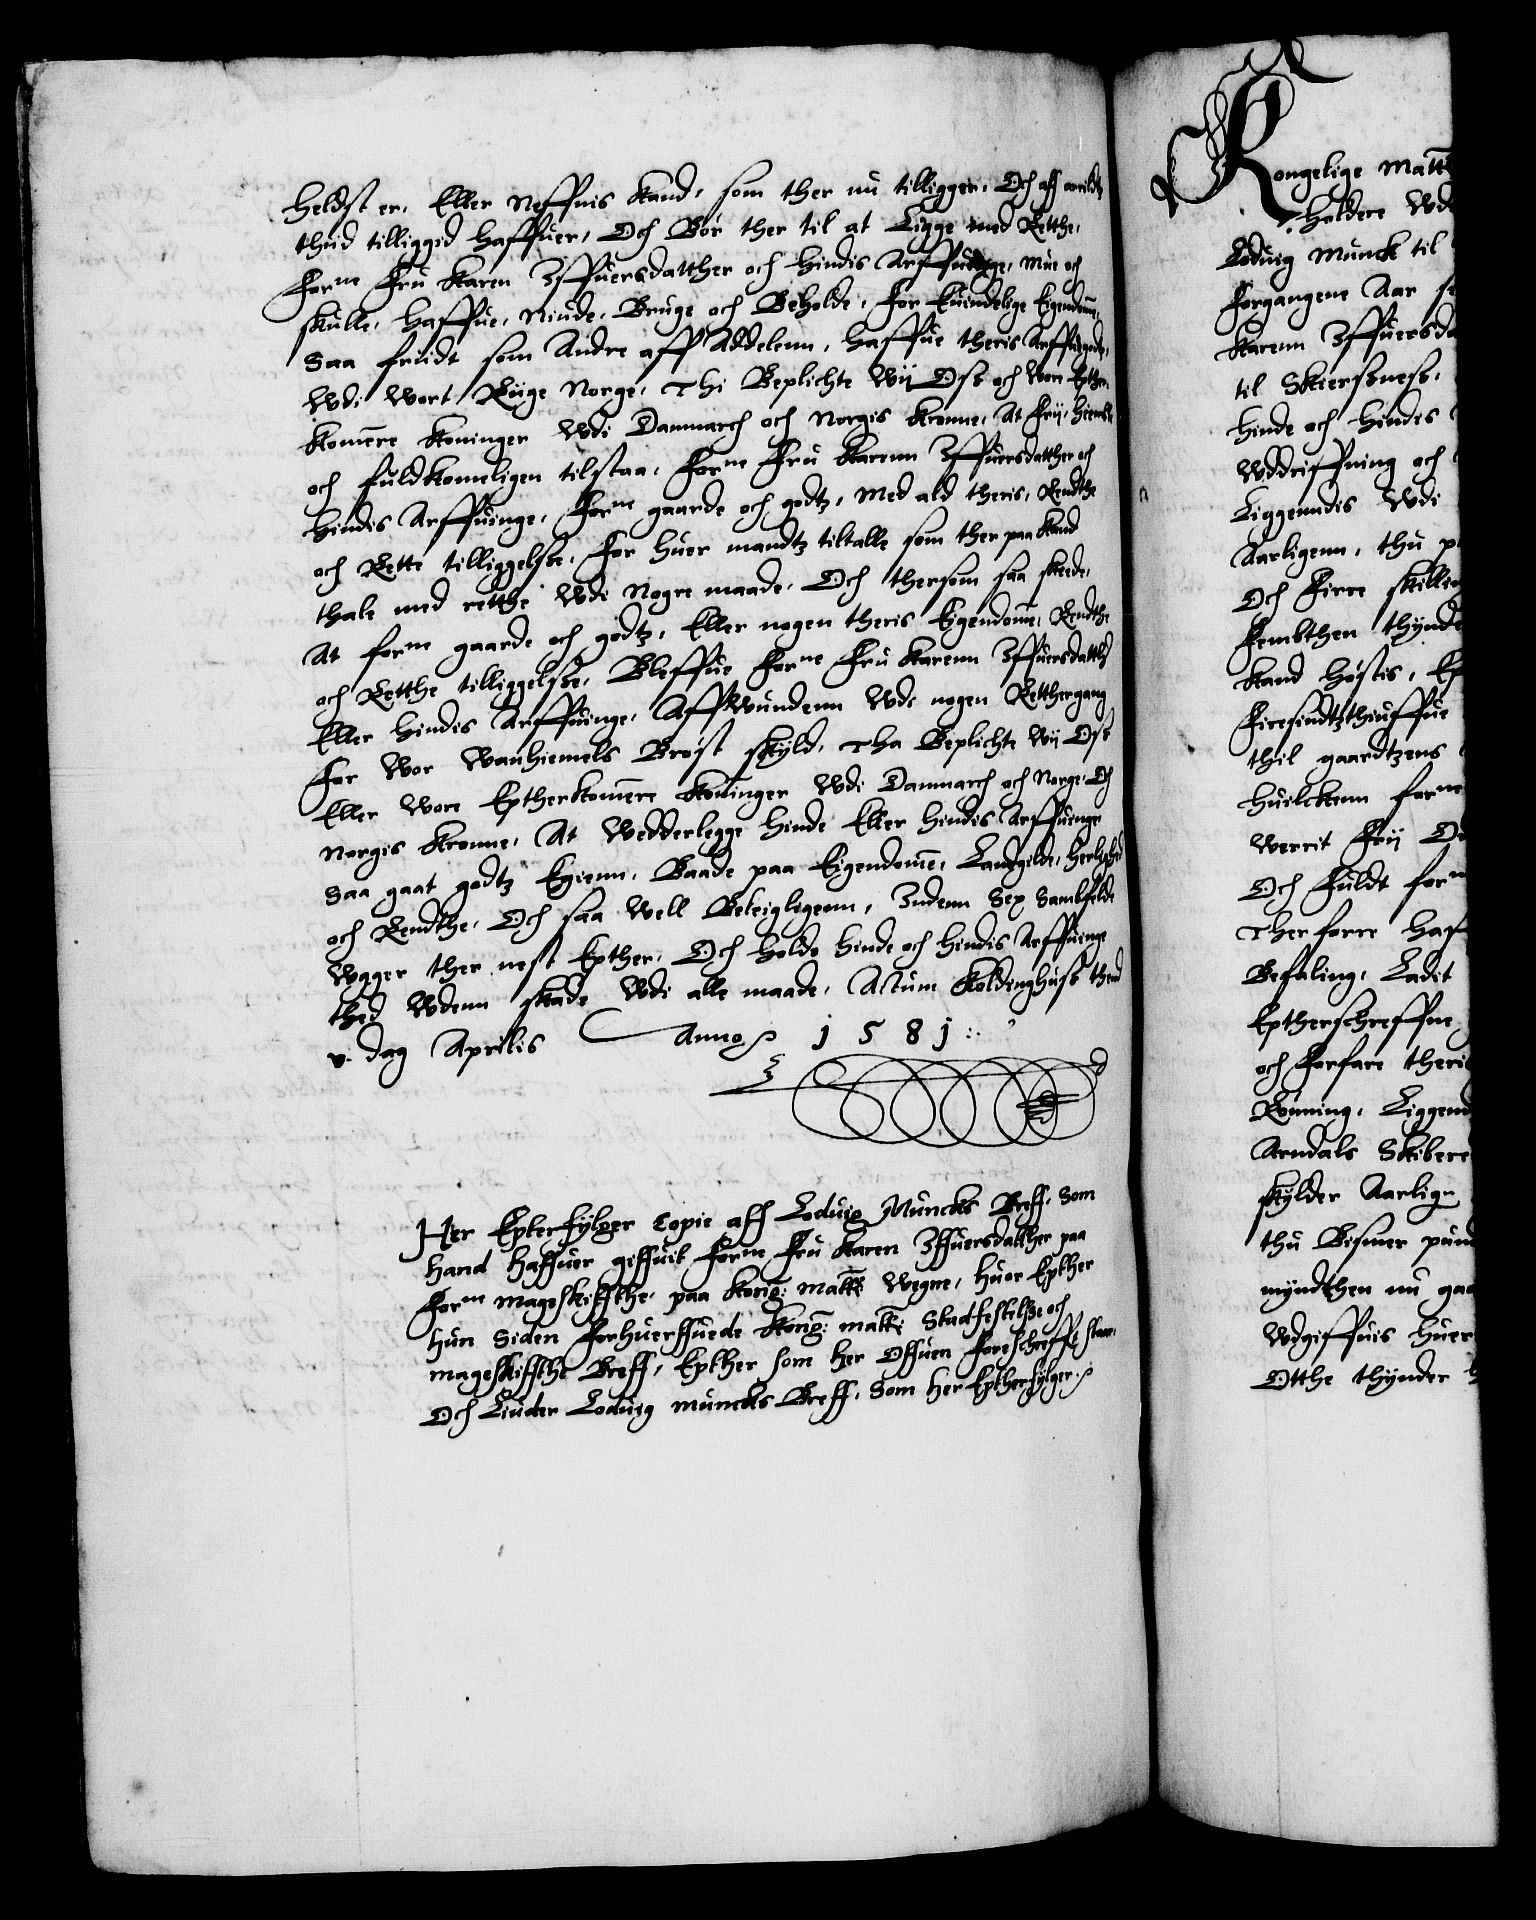 heldst er, Eller Neffnis kand, som ther nu tilligger, Och aff arrildtz
thiid tilliggid haffuer, Och Bør ther til at Ligge med Retthe,
Forne Fru Karen Iffuersdatther och hindis Arffuinge, Mue och
skulle, haffue, Niude, Bruge och Beholde, for Euindelige Eigendomb,
Saa friidt som Andre aff Addelenn, haffue theris Arffuegodz,
Wdi Wort Riige Norge, Thi Beplichte Wij Oss och Wore Epther-
komere Koninger Wdi Danmarch och Norgis Kronne, At Frij, hiemble
och fuldkomeligen tilstaa, Forne Fru Karenn Iffuersdatther och
hindis Arffuinge, Forne gaarde och godtz, Med ald theris, Rendthe
och Rette tilliggelsse, For huer mandtz tiltalle som ther paa kand
thale med retthe Wdi Nogre maade, Och thersom saa skeede,
At forne gaarde och godtz, Eller nogen theris Eigendomme, Rendthe
och Retthe tilliggelsse, Bleffue Forne Fru Karenn Iffuersdatther
Eller hindis Arffuinge, Affwundenn Wdi nogen Retthergang
For Wor Wanhiemels Brøst skyld, Tha Beplichte Wij Oss
Eller Wore Eptherkomere Koninger Wdi Danmarch och Norge, Och
Norgis Kronne, At Wedderlegge hinde Eller hindis Arffuinge
Saa gaat godtz Egienn, Baade paa Eigendomme, Landgilde, herlighed
och Rendthe, Och saa Well Beleigligenn, Indenn Sex Samblfelde
Wger ther nest Epther, Och holde hinde och hindis Arffuinge
thed Wdenn skade Wdi alle maade, Actum Koldinghuss thend
v. dag Aprilis Anno 1581
Her Epterfylger Copie aff Loduig Muncks Breff, Som
hand haffuer giffuit Forne Fru Karen Iffuersdatther paa
Forne mageskiffthe, paa Kong: matts Wegne, huor Epther
hun Siden Forhuerffuede Kong: matts Stadfestelsse och
mageskiffthe Breff, Epther som her Offuen Foreschreffit staar,
Och Liuder Loduig muncks Breff, Som her Eptherfylger
Kongelige Matts
holdere Wdi
Loduig Munck til
Forgangene Aar
Karenn Iffuersda
til Skiersness,
hinde och hindis
Wddriffning och
Liggenndis Wdi
Aarligenn, thu
Och Firre skilling
Fembthen thynde
Kand høstis,
Firesindtzthiuffue
thil gaardtzens
huilckenn forne
Werrit Frij
Och Fuldt forne
Therforre haf
Befaling, Ladit
Eptherschreffne
och Forfare theris
Rønning, Liggend
Arndals Skibere
skylder Aarlign
thu Bismer pund
myndthen nu gaa
Wdgiffuis huer
Otthe thynder